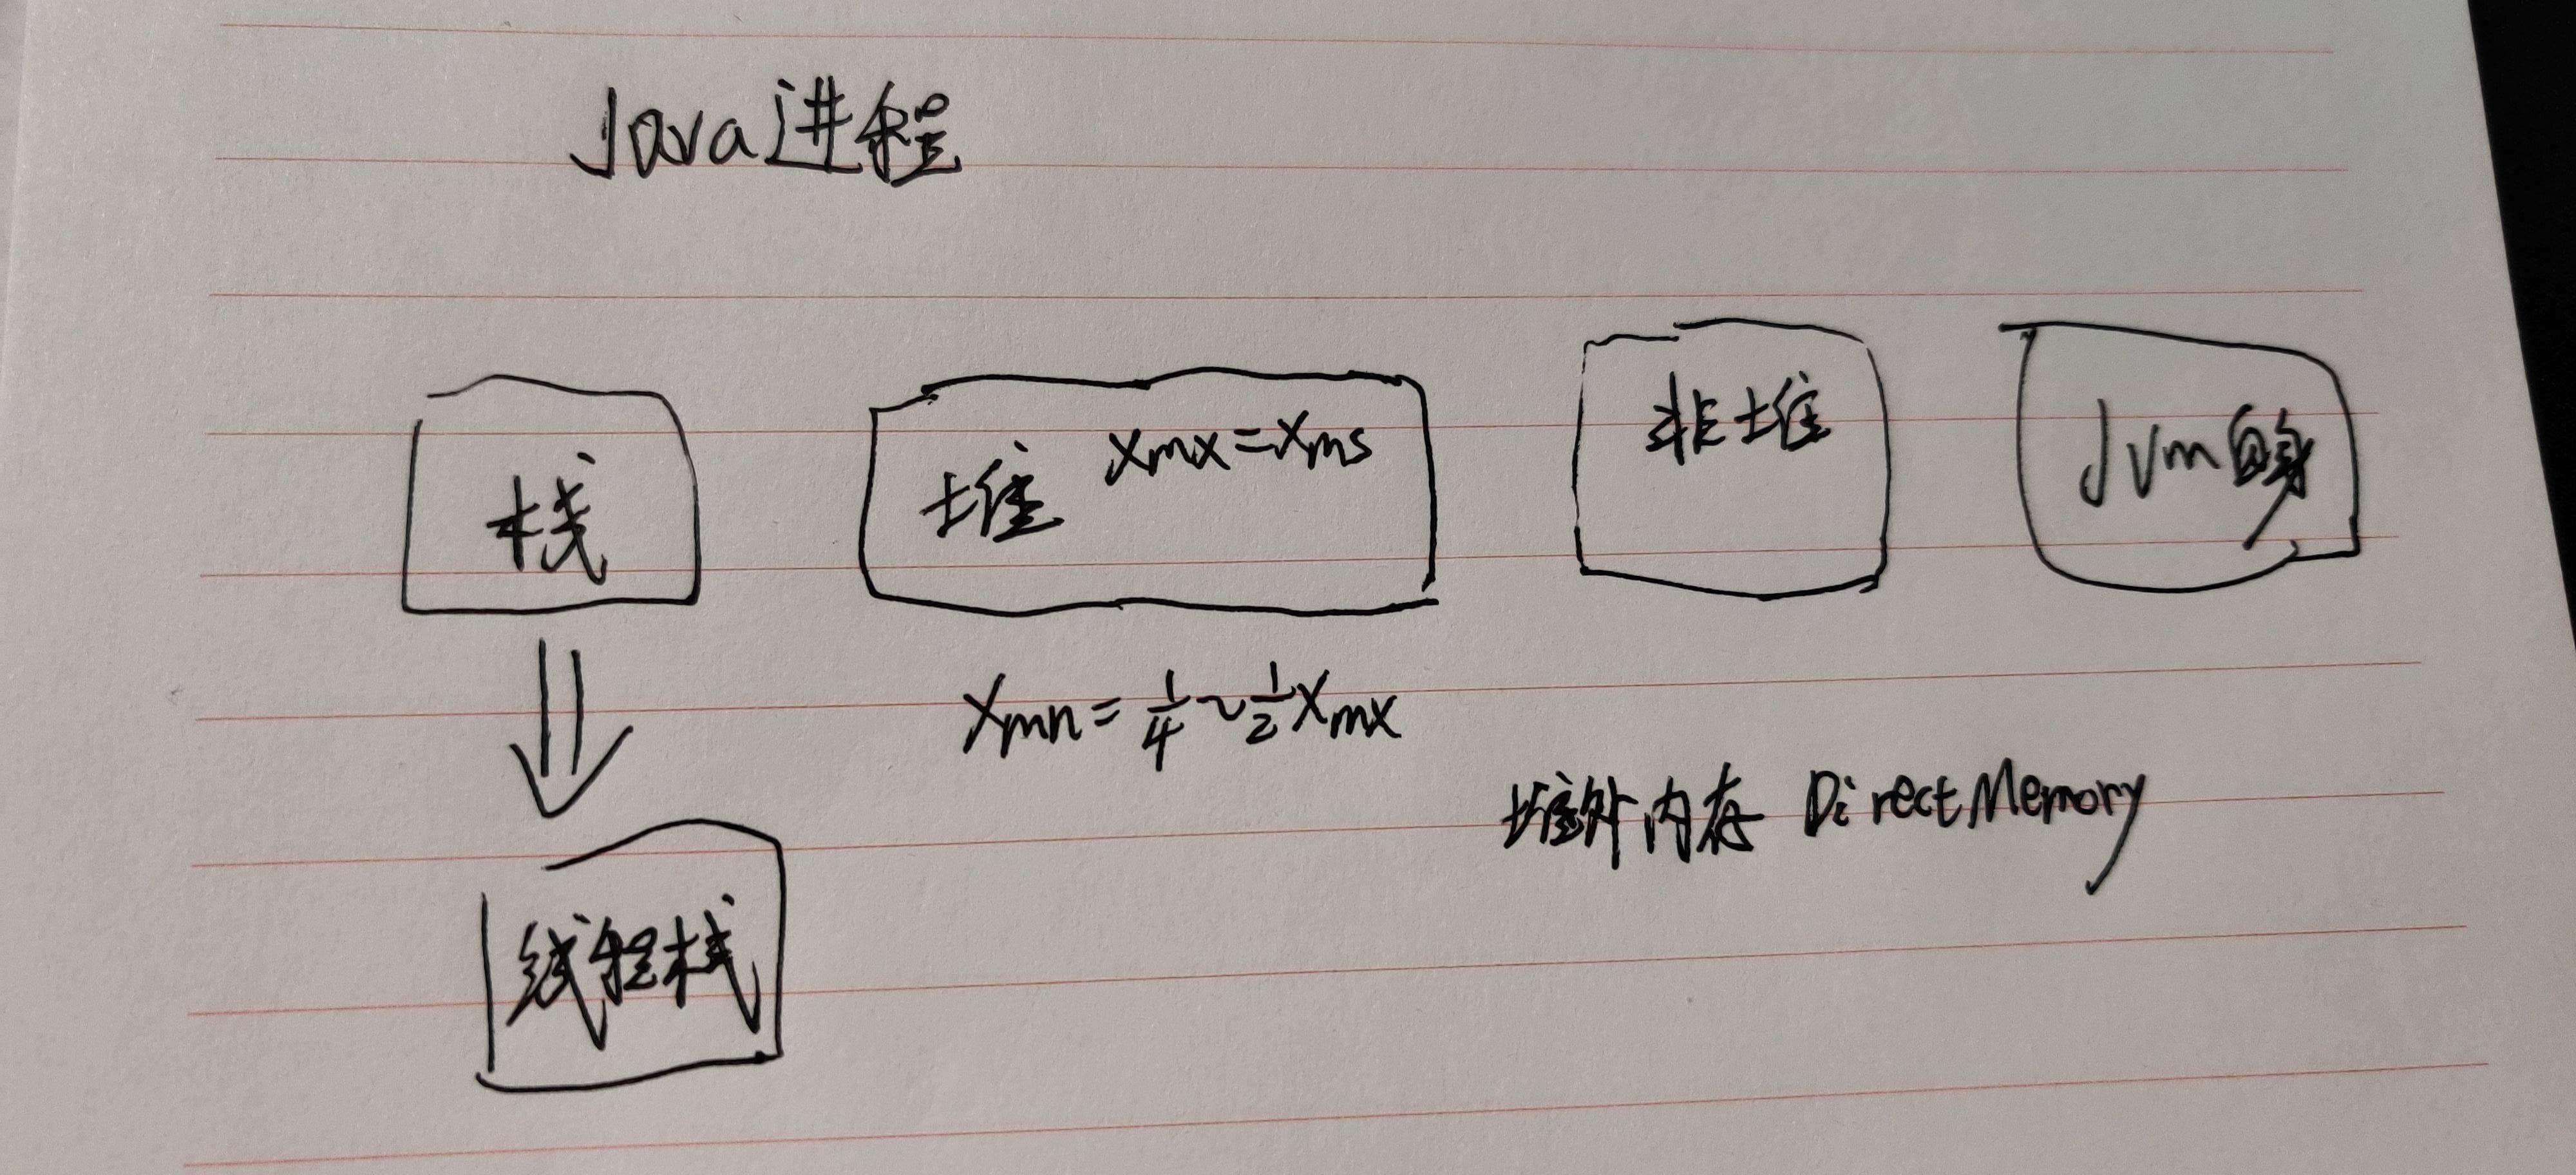 Java进程
栈
堆 Xmx=Xms
非堆
Jvm自身
Xmn=1/4~1/2Xmx
堆外内存 DirectMemory
线程栈